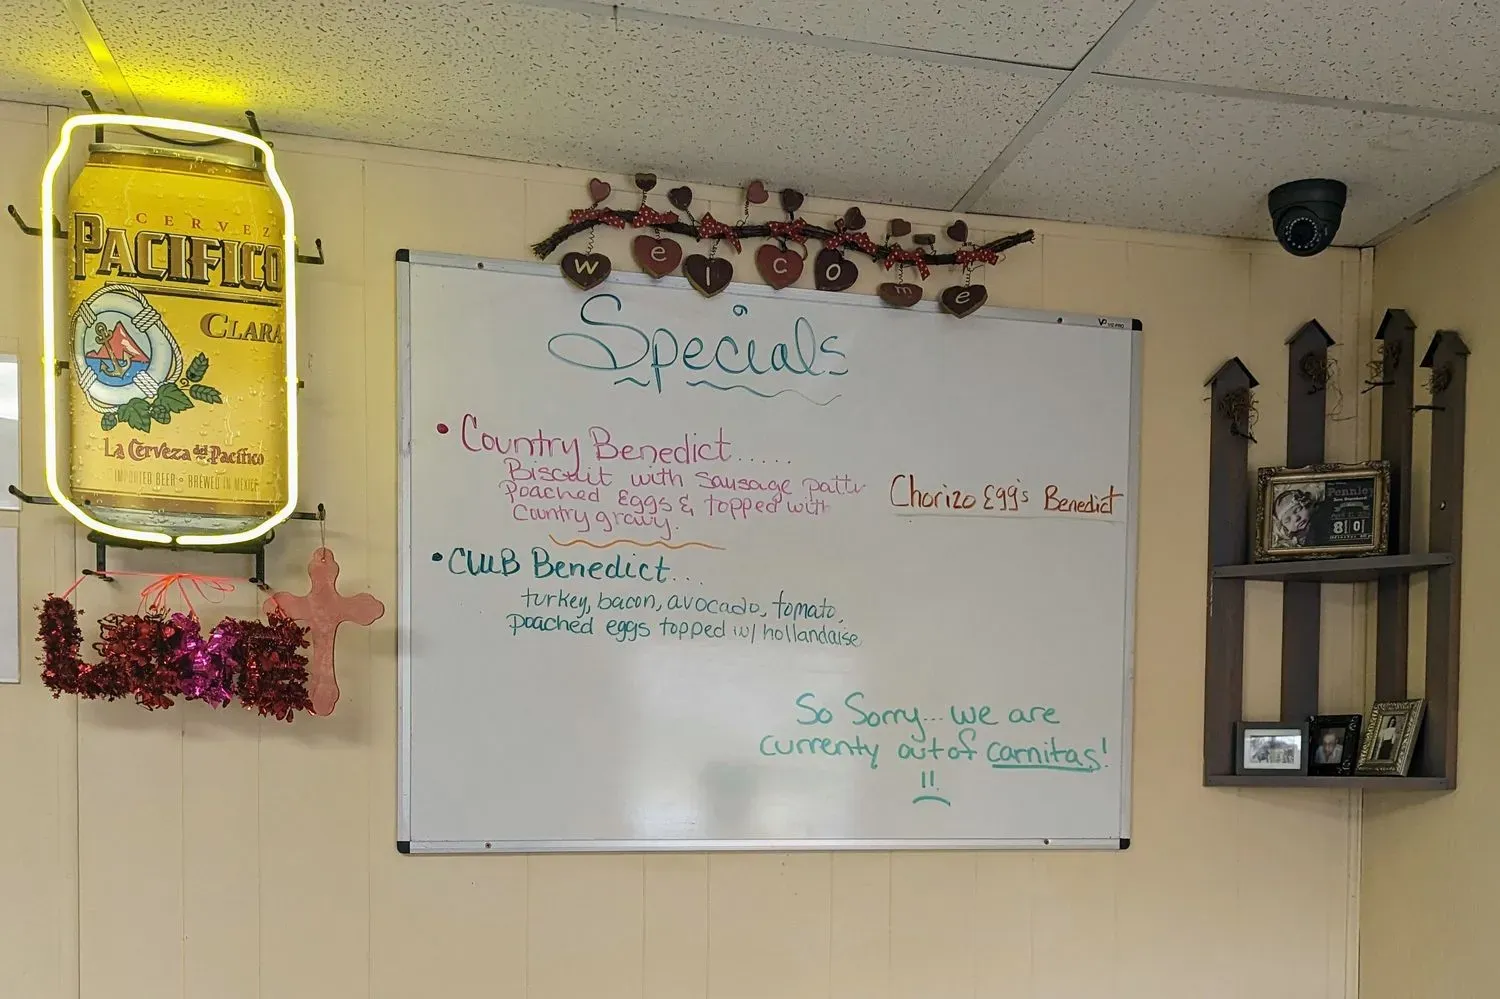 CERVEZ
PACIFICO
CLARA
La Cerveza del Pacifico
IMPORTED BEER • BREWED IN MEXICO
LOVE
welcome
VIZ-PRO
Specials
• Country Benedict.....
Biscuit with sausage patty
Poached Eggs & topped with
Country gravy.
Chorizo Egg's Benedict
• CLUB Benedict...
turkey, bacon, avocado, tomato,
poached eggs topped w/ hollandaise
So Sorry... we are
currenty out of carnitas!
Pennie
8|0|